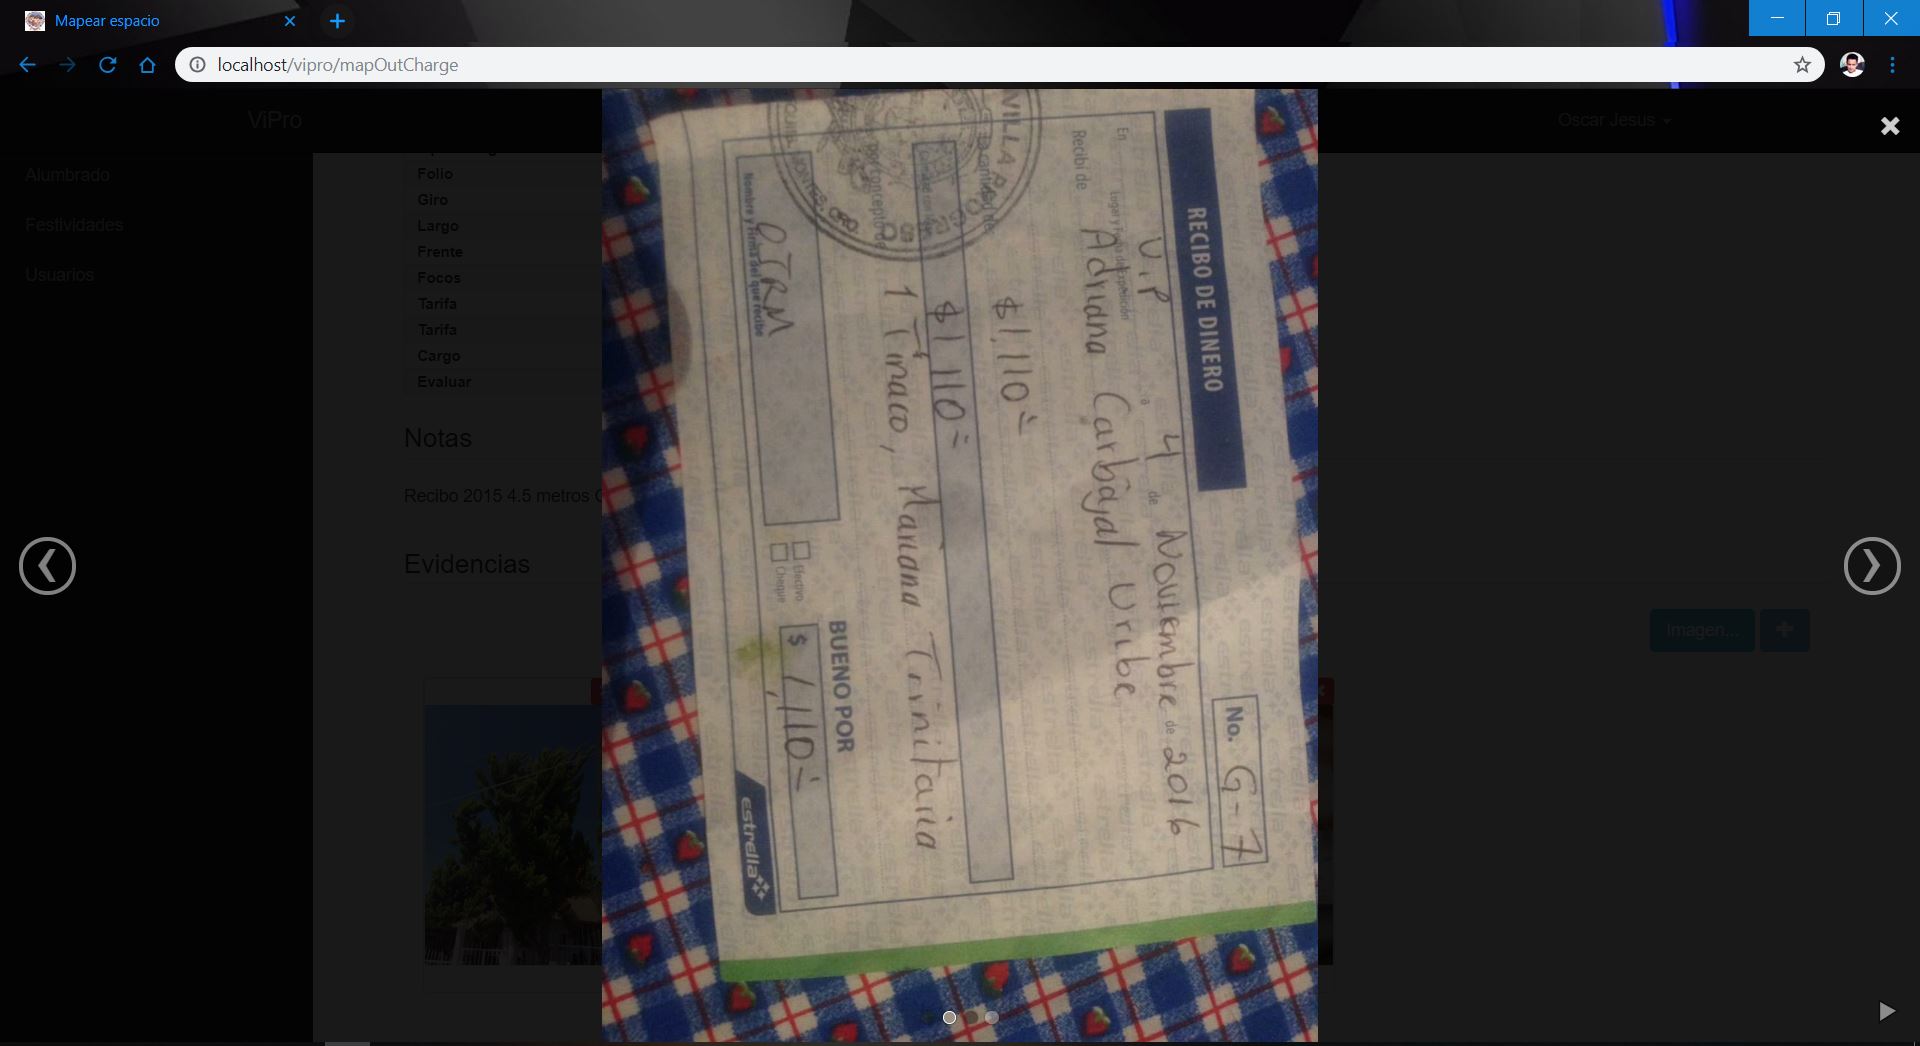 Mapear espacio
localhost/vipro/mapOutCharge
ViPro
Oscar Jesus
Alumbrado
Festividades
Usuarios
Folio
Giro
Largo
Frente
Focos
Tarifa
Tarifa
Cargo
Evaluar
Notas
Recibo 2015 4.5 metros
Evidencias
Imagen...
RECIBO DE DINERO
No. G-7
En V.P a 4 de Noviembre de 2016
Lugar y Fecha de Expedición
Recibí de Adriana Carbajal Uribe
la cantidad de $1,110=
$1110=
por concepto de 1 Tinaco, Mariana Trinitaria
VILLA PROGRESO
MONTES, QRO.
BUENO POR
Efectivo
Cheque
$ 1,110=
OTRM
Nombre y Firma del que recibe
estrella